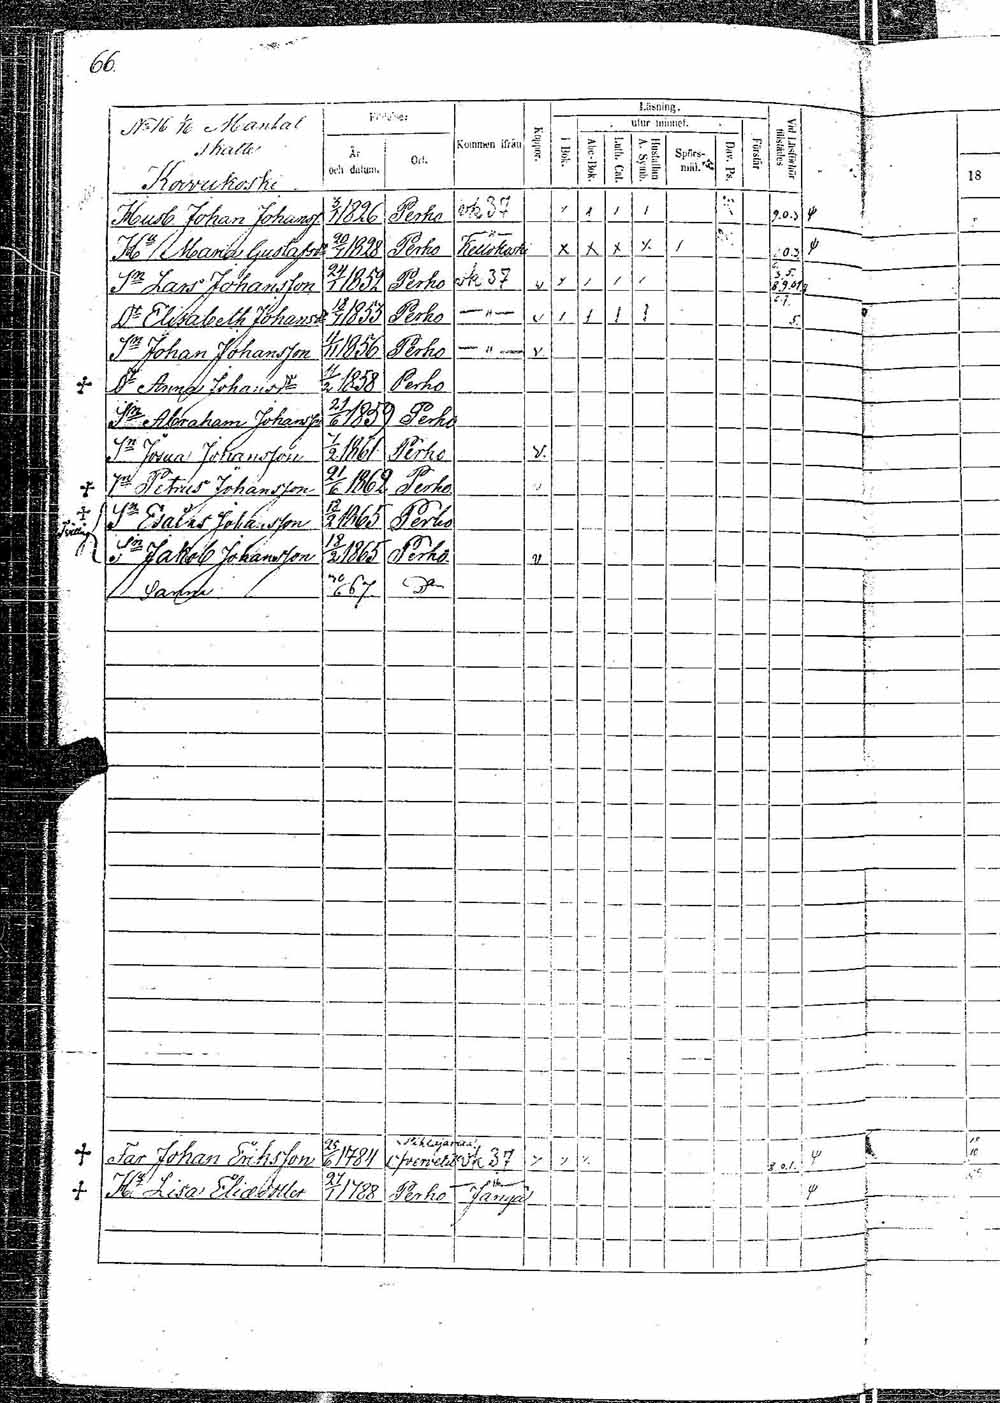 66.
No 16 1/6 Mantal
skatte
Korvukoski
Födelse:
År och datum.
Ort.
Kommen ifrån
Koppor.
Läsning.
utur minnet.
I Bok.
Abc-Bok.
Luth. Cat.
Hustaflan A. Symb.
Spörs-mål.
Dav. Ps.
Förstår
Vid Läsförhör tillstädes
18
Husb Johan Johanss. 3/7 1826 Perho sk 37 9.0.3 ψ
Hu Maria Gustafsdr 20/7 1828 Perho 0.3 ψ
Sn Lars Johansson 24/7 1852 Perho sk 37 v
Dr Elisabeth Johansdr 18/7 1853 Perho — " — v 5.
Sn Johan Johansson 1/11 1856 Perho — " — v
+ Dr Anna Johansdr 11/2 1858 Perho
Sn Abraham Johanss 21/6 1859 Perho
Sn Josua Johansson 7/2 1861 Perho v.
+ Sn Petrus Johansson 21/6 1862 Perho v
+ Sn Esaias Johansson 18/2 1865 Perho
Tvilling
Sn Jakob Johansson 18/2 1865 Perho v
Sanna 30/6 67 Do
+ Far Johan Eriksson 25/6 1784 sk 37 8 0.1. ψ
+ Hu Lisa Eliædotter 27/1 1788 Perho ψ